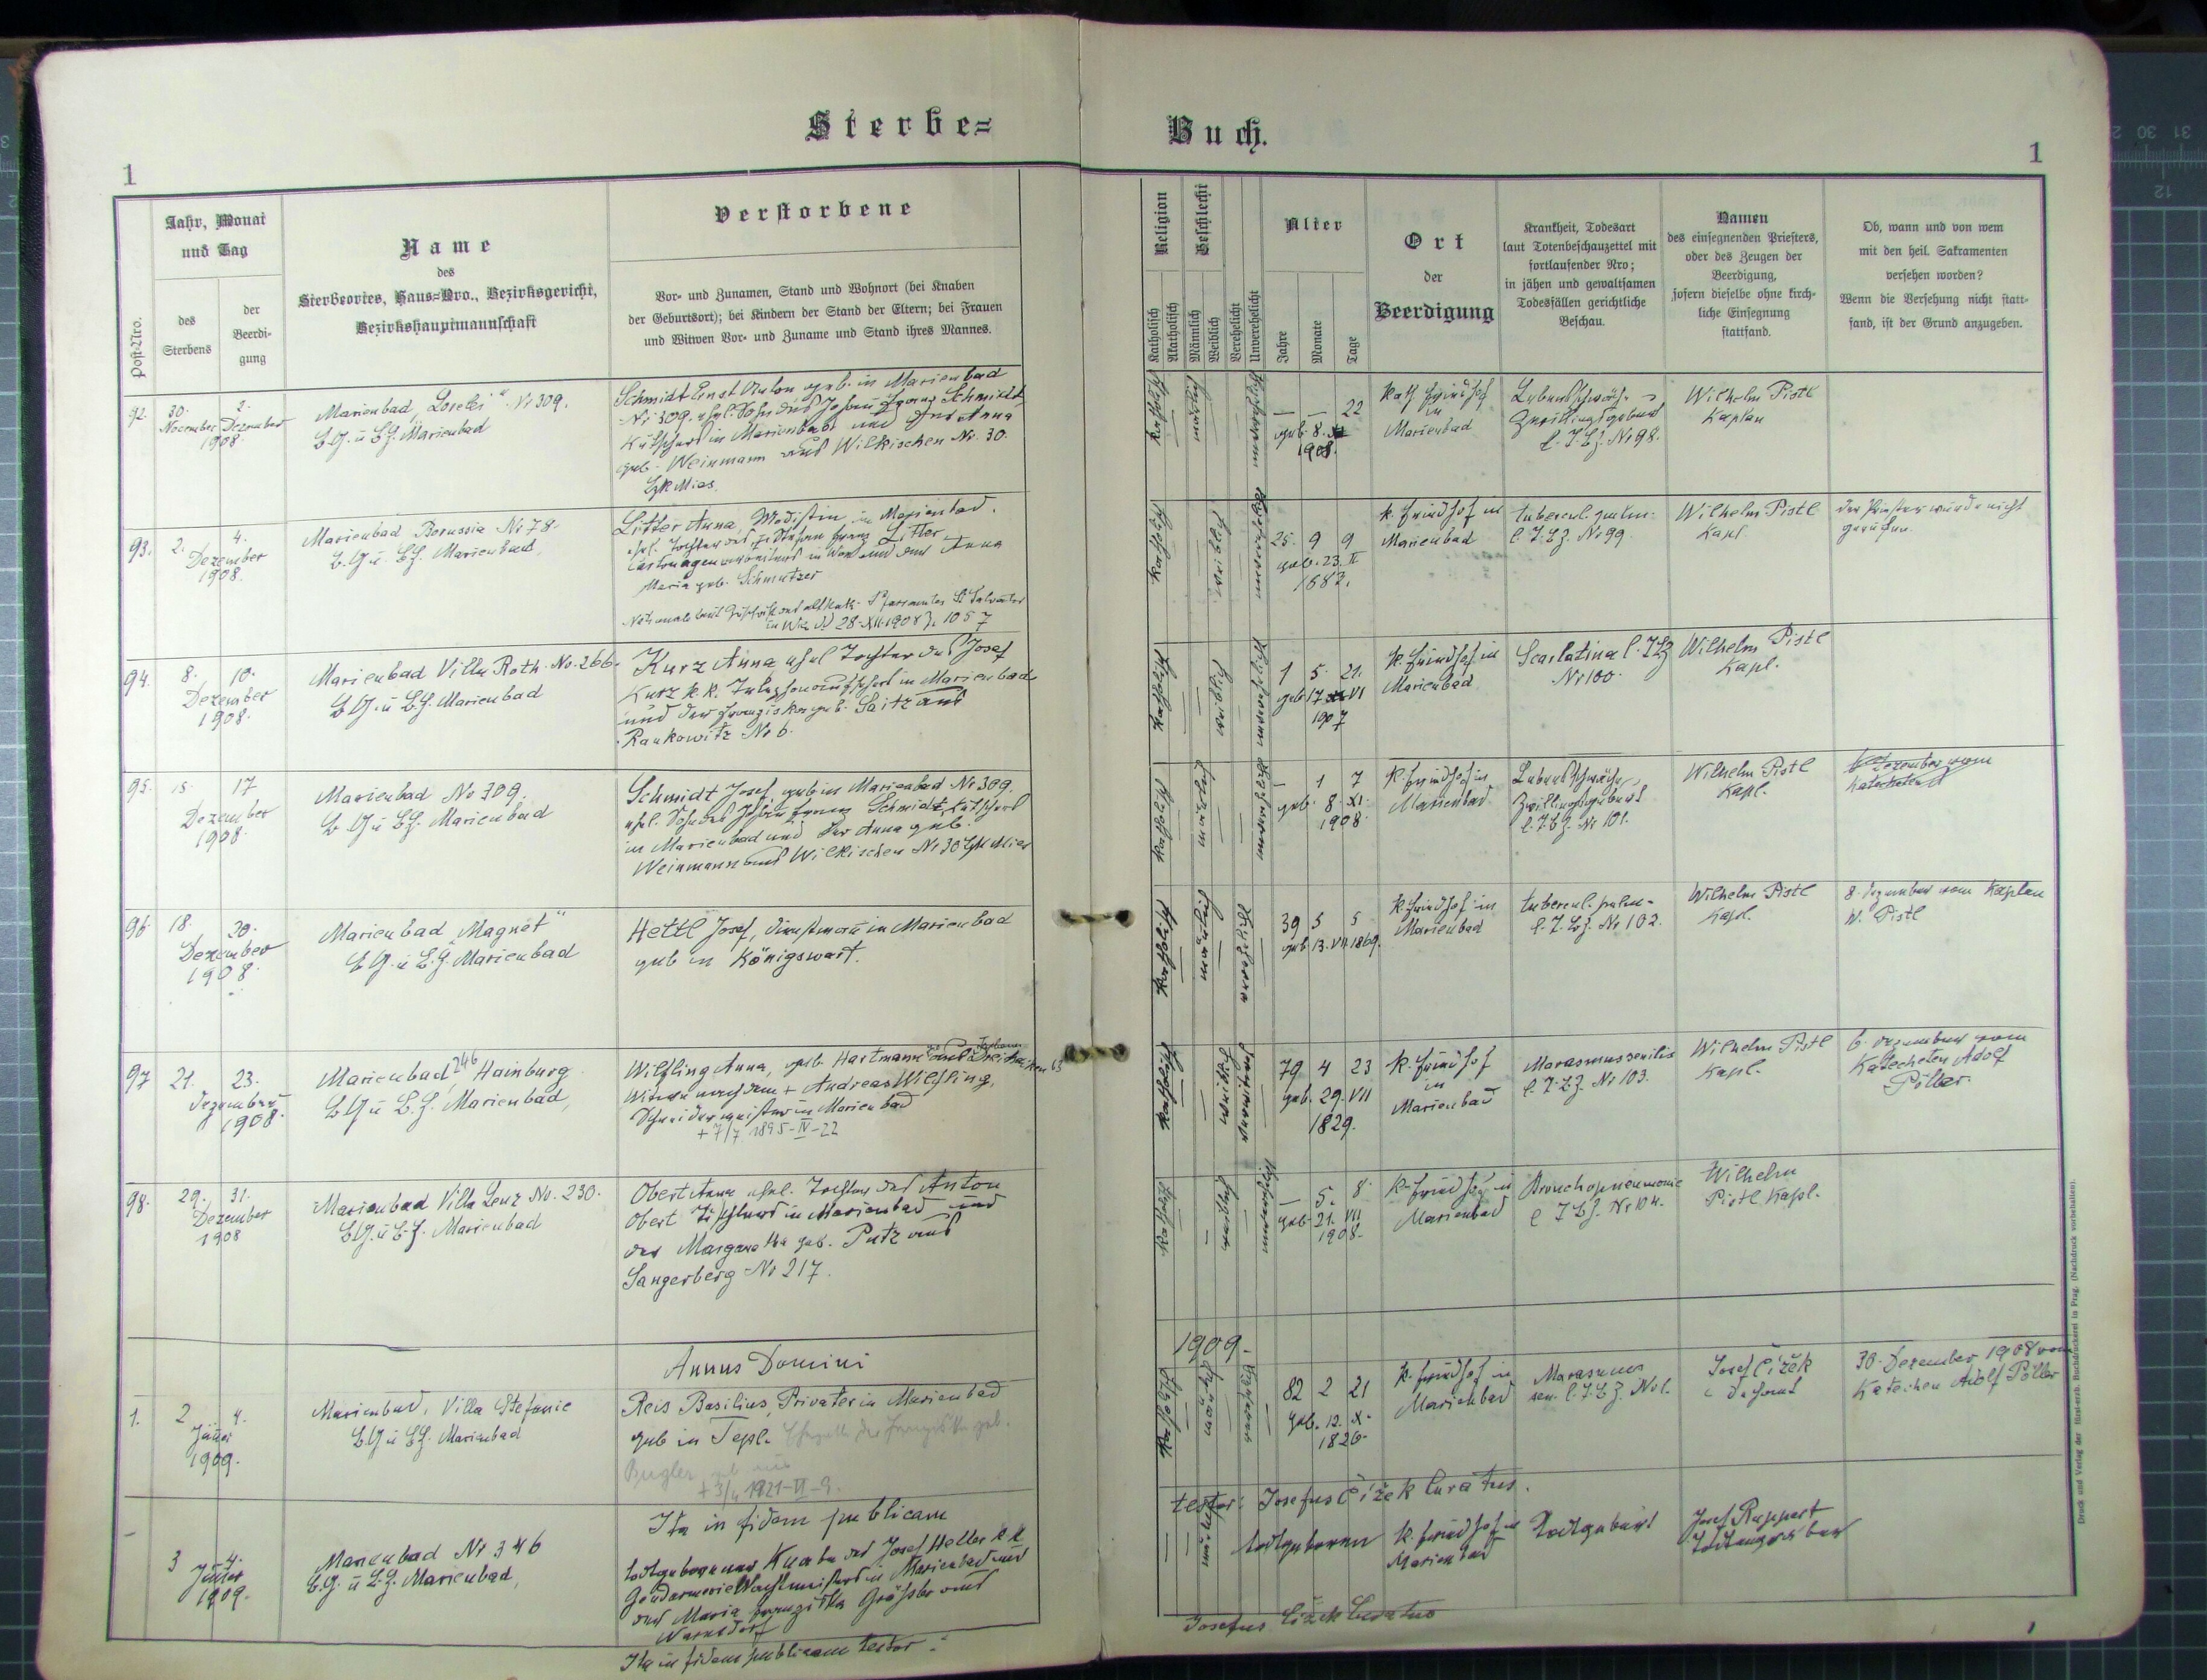 Sterbe=
Buch.
1
1
Post-Nro.
Jahr, Monat
und Tag
des
Sterbens
der
Beerdi-
gung
Name
des
Sterbeortes, Haus=Nro., Bezirksgericht,
Bezirkshauptmannschaft
Verstorbene
Vor- und Zunamen, Stand und Wohnort (bei Knaben
der Geburtsort); bei Kindern der Stand der Eltern; bei Frauen
und Witwen Vor- und Zuname und Stand ihres Mannes.
Religion
Katholisch
Akatholisch
Geschlecht
Männlich
Weiblich
Verehelicht
Unverehelicht
Alter
Jahre
Monate
Tage
Ort
der
Beerdigung
Krankheit, Todesart
laut Totenbeschauzettel mit
fortlaufender Nro;
in jähen und gewaltsamen
Todesfällen gerichtliche
Beschau.
Namen
des einsegnenden Priesters,
oder des Zeugen der
Beerdigung,
sofern dieselbe ohne kirch-
liche Einsegnung
stattfand.
Ob, wann und von wem
mit den heil. Sakramenten
versehen worden?
Wenn die Versehung nicht statt-
fand, ist der Grund anzugeben.
92.
30. 2.
November Dezember
1908
Marienbad "Lorelei" Nr 309.
B.G. u B.H. Marienbad
Schmidt Ernst Anton geb. in Marienbad
Nr 309. ehel. Sohn des Johann Schmidt
Kutschers in Marienbad und der Anna
geb. Weinmann aus Wilkischen Nr. 30.
Bzk Mies.
katholisch
männlich
unverehelicht
— — 22
geb. 8. XI
1908.
Kath Friedhof
in
Marienbad
Lebensschwäche
Zwillingsgeburt
Nr 98.
Wilhelm Pistl
Kaplan
93.
2. 4.
Dezember
1908.
Marienbad Borussia Nr 78.
B.G u. B.H. Marienbad,
Litter Anna, Modistin in Marienbad.
ehel. Tochter des Franz Litter
in Wien und der Anna
Maria geb. Schmutzer
28. XII. 1908 Z. 1057
katholisch
weiblich
unverehelicht
25. 9 9
geb. 23. II
1883.
k. Friedhof in
Marienbad
tubercul. pulm.
Nr 99.
Wilhelm Pistl
Kapl
der Priester wurde nicht
gerufen
94.
8. 10.
Dezember
1908.
Marienbad Villa Roth. No. 266.
B.G. u B.H. Marienbad
Kurz Anna ehel Tochter des Josef
Kurz k.k. in Marienbad
und der Franziska geb. Saitz aus
Raukowitz Nr 6.
katholisch
weiblich
unverehelicht
1 5. 21.
geb 17 VI
1907
k. Friedhof in
Marienbad
Scarlatina
Nr 100.
Wilhelm Pistl
Kapl.
95.
15. 17
Dezember
1908.
Marienbad No 309.
B.G u B.H. Marienbad
Schmidt Josef, geb in Marienbad Nr 309.
ehel. Sohn des Johann Schmidt, Kutschers
in Marienbad und der Anna geb.
Weinmann aus Wilkischen Nr 30 Bzk Mies
katholisch
männlich
unverehelicht
— 1 7
geb. 8. XI.
1908.
k. Friedhof in
Marienbad
Lebensschwäche,
Zwillingsgeburt
Nr 101.
Wilhelm Pistl
Kapl.
6 Dezember vom
Katecheten
96.
18. 20.
Dezember
1908.
Marienbad "Magnet"
B.G. u B.H. Marienbad
Hettl Josef, Dienstmann in Marienbad
geb in Königswart.
katholisch
männlich
verehelicht
39 5 5
geb. 13. VII. 1869.
k. Friedhof in
Marienbad
tubercul. pulm.
Nr 102.
Wilhelm Pistl
Kapl.
8. Dezember vom Kaplan
W. Pistl
97
21. 23.
Dezember
1908.
Marienbad, 246 Hainburg
B.G u B.H. Marienbad,
Wilfling Anna, geb. Hartmann aus
Witwe nach dem + Andreas Wilfling,
Schneidermeister in Marienbad
+ 7/7 1895-IV-22
katholisch
weiblich
verwitwet
79 4 23
geb. 29. VII
1829.
k. Friedhof
in
Marienbad
Marasmus senilis
Nr 103.
Wilhelm Pistl
Kapl.
6. Dezember vom
Katecheten Adolf
Pöller.
98.
29. 31.
Dezember
1908
Marienbad Villa Lenz No. 230.
B.G. u B.H. Marienbad
Obert Anna ehel. Tochter des Anton
Obert Tischlers in Marienbad und
der Margaretha geb. Putz aus
Sangerberg Nr 217.
katholisch
weiblich
unverehelicht
— 5. 8.
geb. 21. VII
1908.
k. Friedhof in
Marienbad
Bronchopneumonie
Nr 104.
Wilhelm
Pistl Kapl.
Annus Domini
1909.
1.
2 4.
Jänner
1909.
Marienbad, Villa Stefanie
B.G u B.H. Marienbad
Reis Basilius, Privatier in Marienbad
geb in Tepl. Ehegatte der Franziska geb.
Bugler
+ 3/4 1921-VI-9.
katholisch
männlich
82 2 21
geb. 12. X.
1826.
k. Friedhof in
Marienbad
Marasmus
sen. No 1.
Josef Čižek
Dechant
30. Dezember 1908 vom
Katecheten Adolf Pöller
Ita in fidem publicam
testor: Josefus Čižek Curatus.
3 4.
Jänner
1909.
Marienbad Nr 346
B.G. u B.H. Marienbad,
Todtgeborener Knabe des Josef Heller k.k.
Gendarmerie Wachtmeisters in Marienbad und
der Maria Franziska Grössler aus
Warnsdorf
männlich
todtgeboren
k. Friedhof in
Marienbad
Todtgeburt
Josef Ruppert
Todtengräber
Ita in fidem publicam testor:
Josefus Čižek Curatus
Druck und Verlag der fürst-erzb. Buchdruckerei in Prag. (Nachdruck vorbehalten).